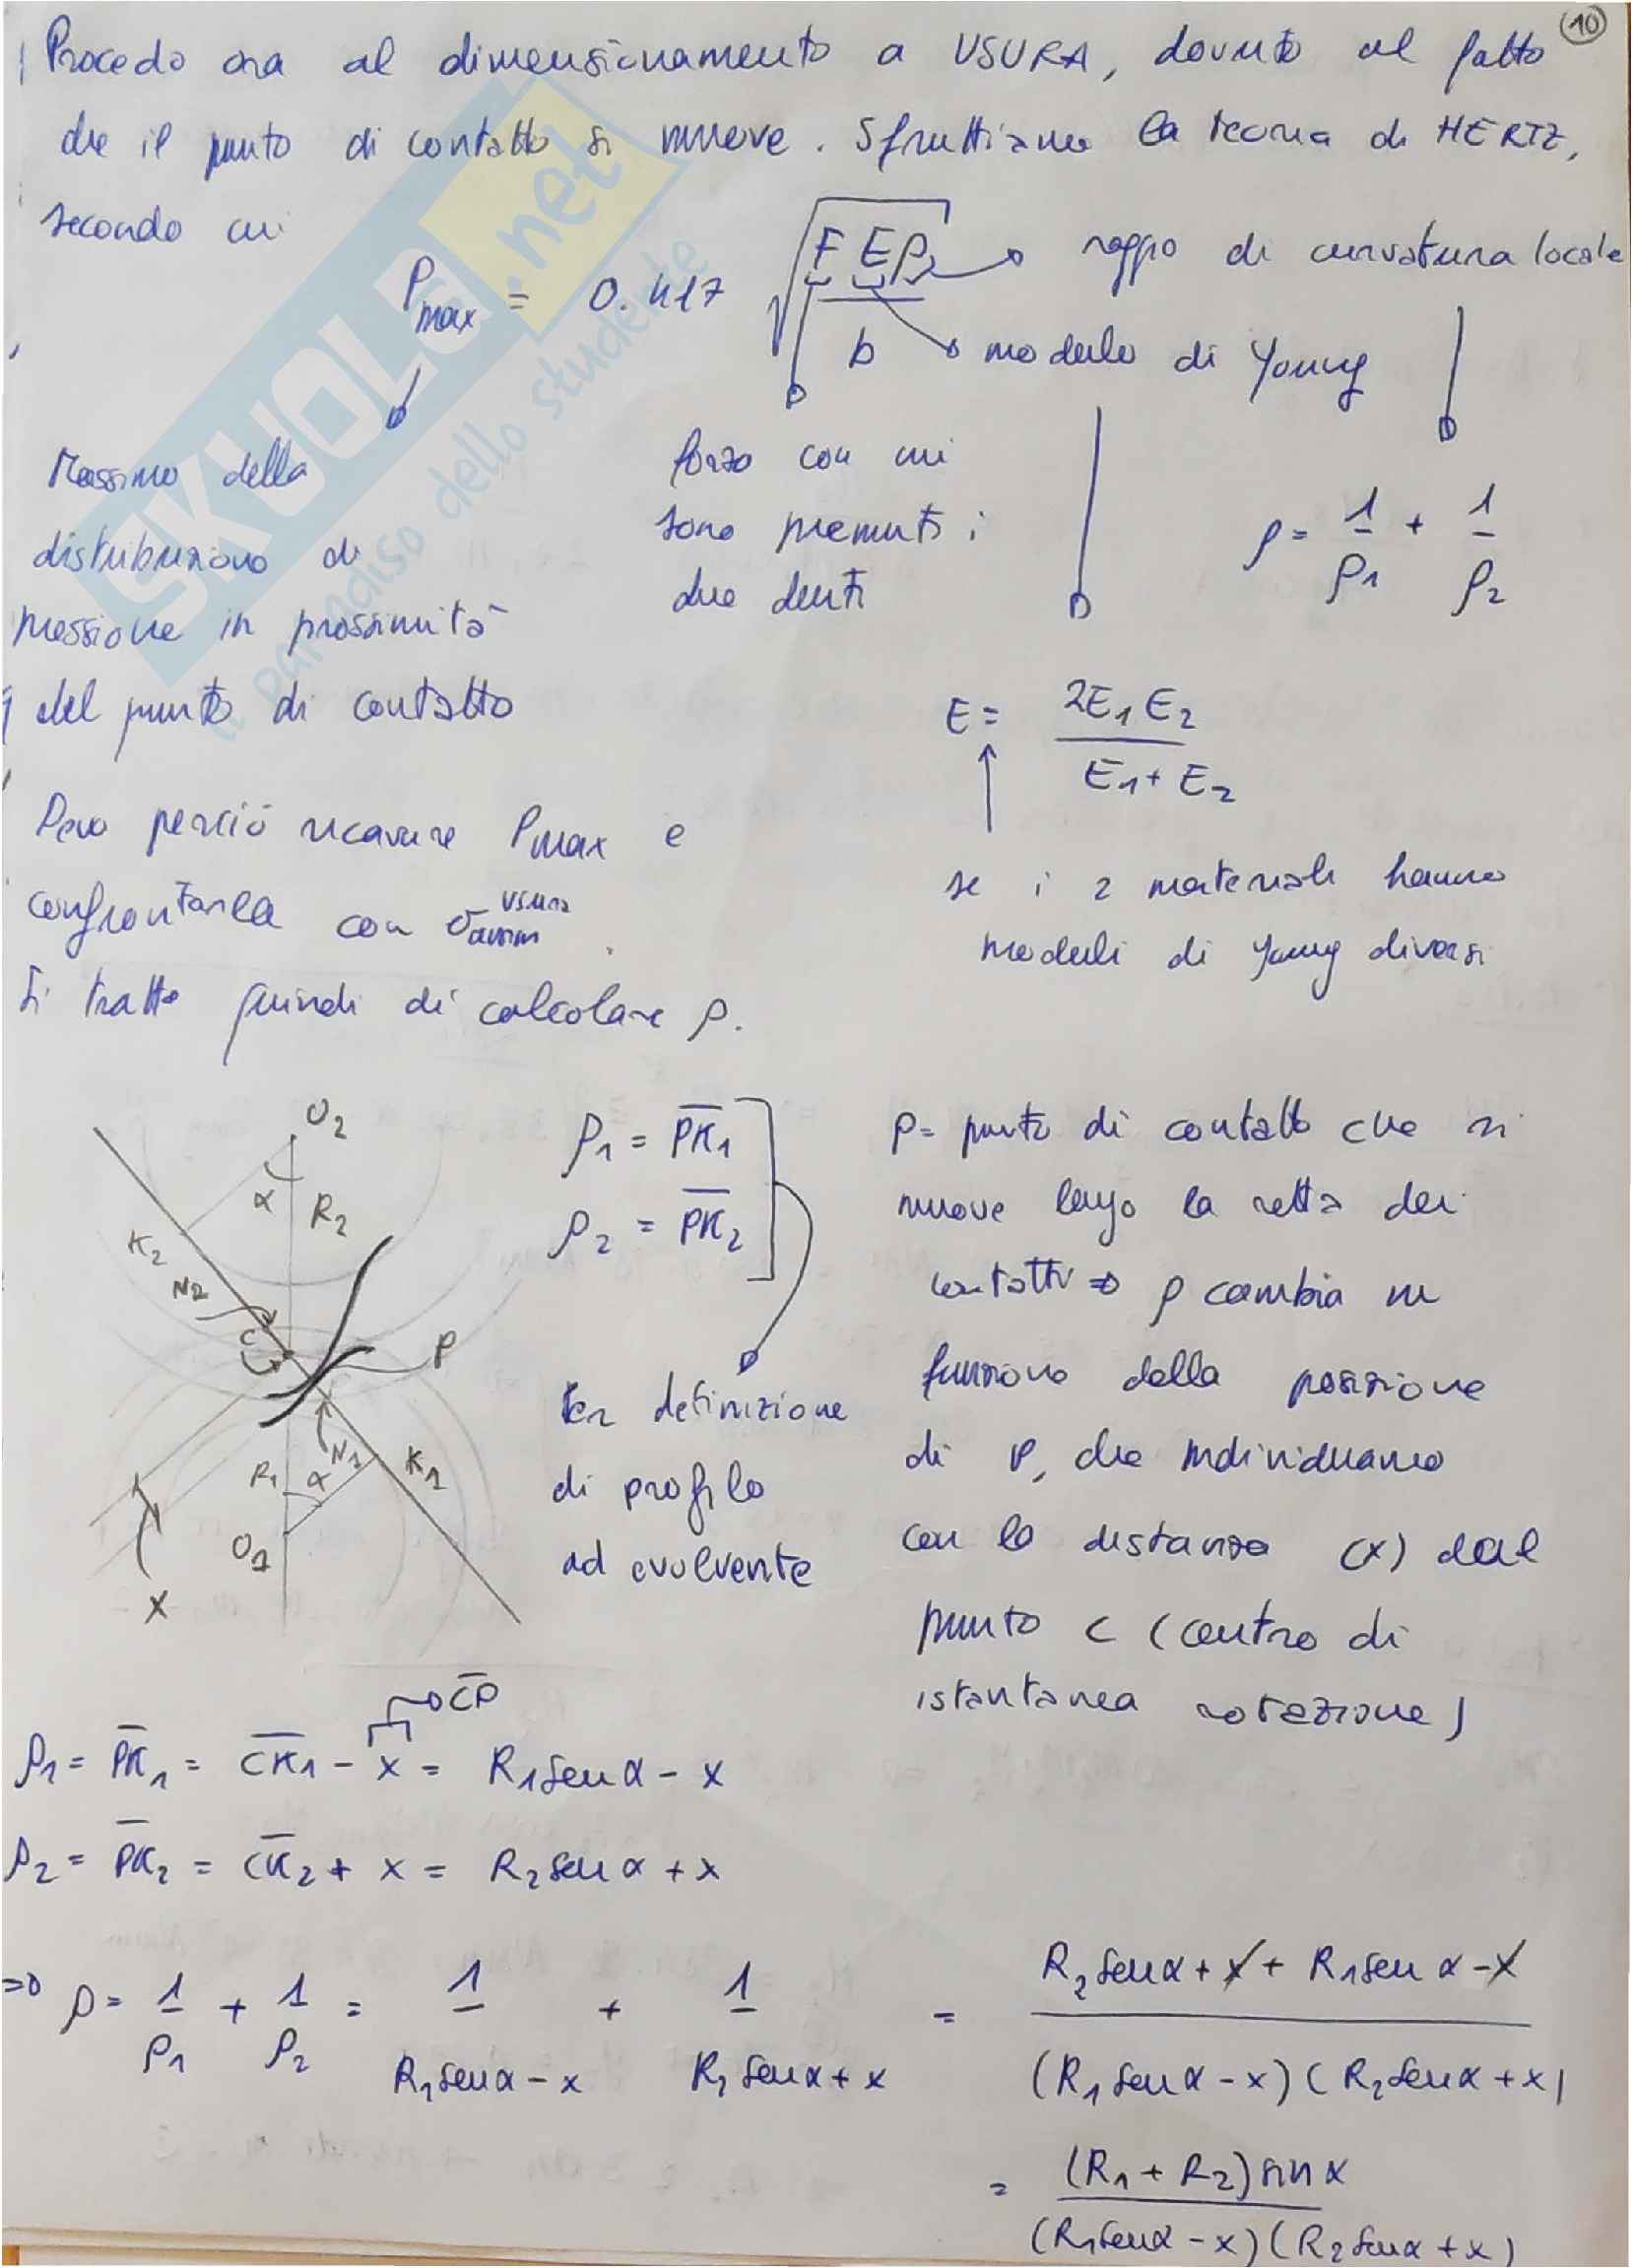 10
Procedo ora al dimensionamento a USURA, dovuto al fatto
che il punto di contatto si muove. Sfruttiamo la teoria di HERTZ,
secondo cui
Pmax = 0.417 √(F E ρ / b)
raggio di curvatura locale
modulo di Young
Massimo della
distribuzione di
pressione in prossimità
del punto di contatto
forza con cui
sono premuti i
due denti
ρ = 1/ρ1 + 1/ρ2
E = 2E1 E2 / E1 + E2
se i 2 materiali hanno
moduli di Young diversi
Devo perciò ricavare Pmax e
confrontarla con σamm usura.
Si tratta quindi di calcolare ρ.
O2
α
R2
K2
N2
C
P
R1
α
N1
K1
O1
X
ρ1 = PK1
ρ2 = PK2
Per definizione
di profilo
ad evolvente
P= punto di contatto che si
muove lungo la retta dei
contatti => ρ cambia in
funzione della posizione
di P, che individuiamo
con la distanza (x) dal
punto C (centro di
istantanea rotazione)
CP
ρ1 = PK1 = CK1 - x = R1 sen α - x
ρ2 = PK2 = CK2 + x = R2 sen α + x
=> ρ = 1/ρ1 + 1/ρ2 = 1/R1 sen α - x + 1/R2 sen α + x = R2 sen α + x + R1 sen α - x / (R1 sen α - x) (R2 sen α + x)
= (R1 + R2) sin α / (R1 sen α - x) (R2 sen α + x)
SKUOLA.net
il paradiso dello studente